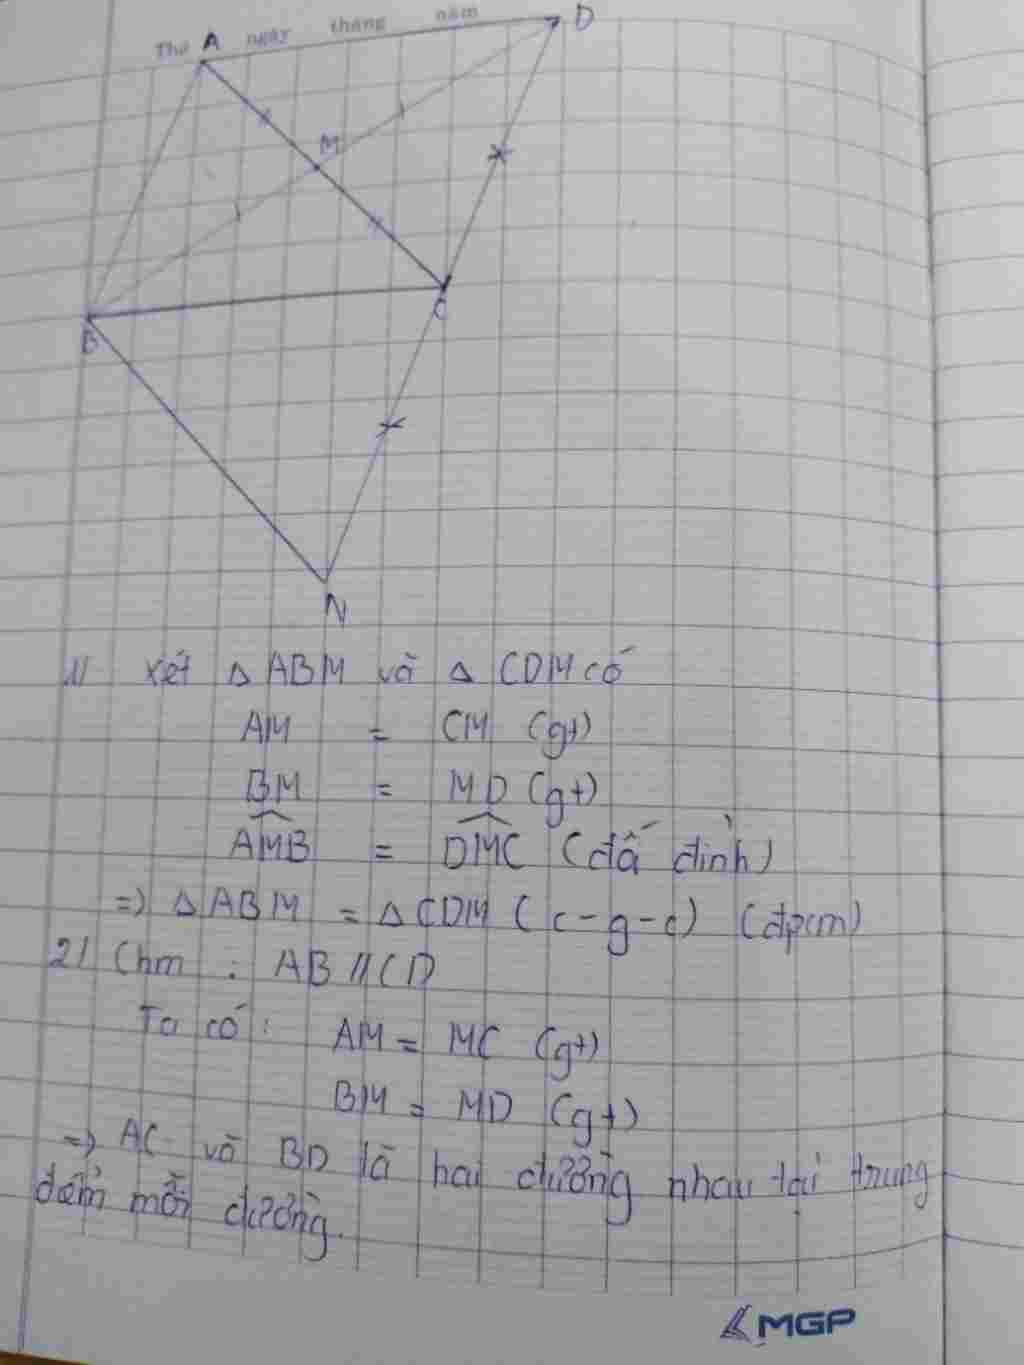 Thứ ngày tháng năm
A
D
M
C
B
N
1/ Xét Δ ABM và Δ CDM có
AM = CM (gt)
BM = MD (gt)
AMB = DMC (đấ đỉnh)
=> Δ ABM = Δ CDM (c-g-c) (đpcm)
2/ Chm : AB // CD
Ta có: AM = MC (gt)
BM = MD (gt)
=> AC và BD là hai đường nhau tại trung
điểm mỗi đường.
MGP